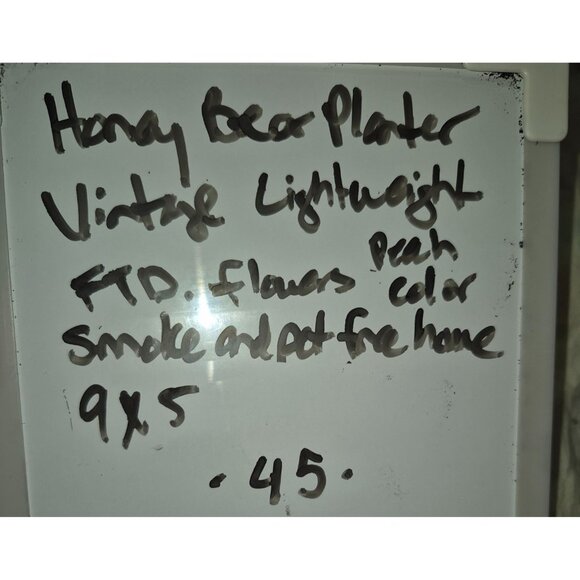 Honey Bear Planter
Vintage Lightweight
FTD. flowers Peah color
smoke and pet free home
9x5
. 45 .